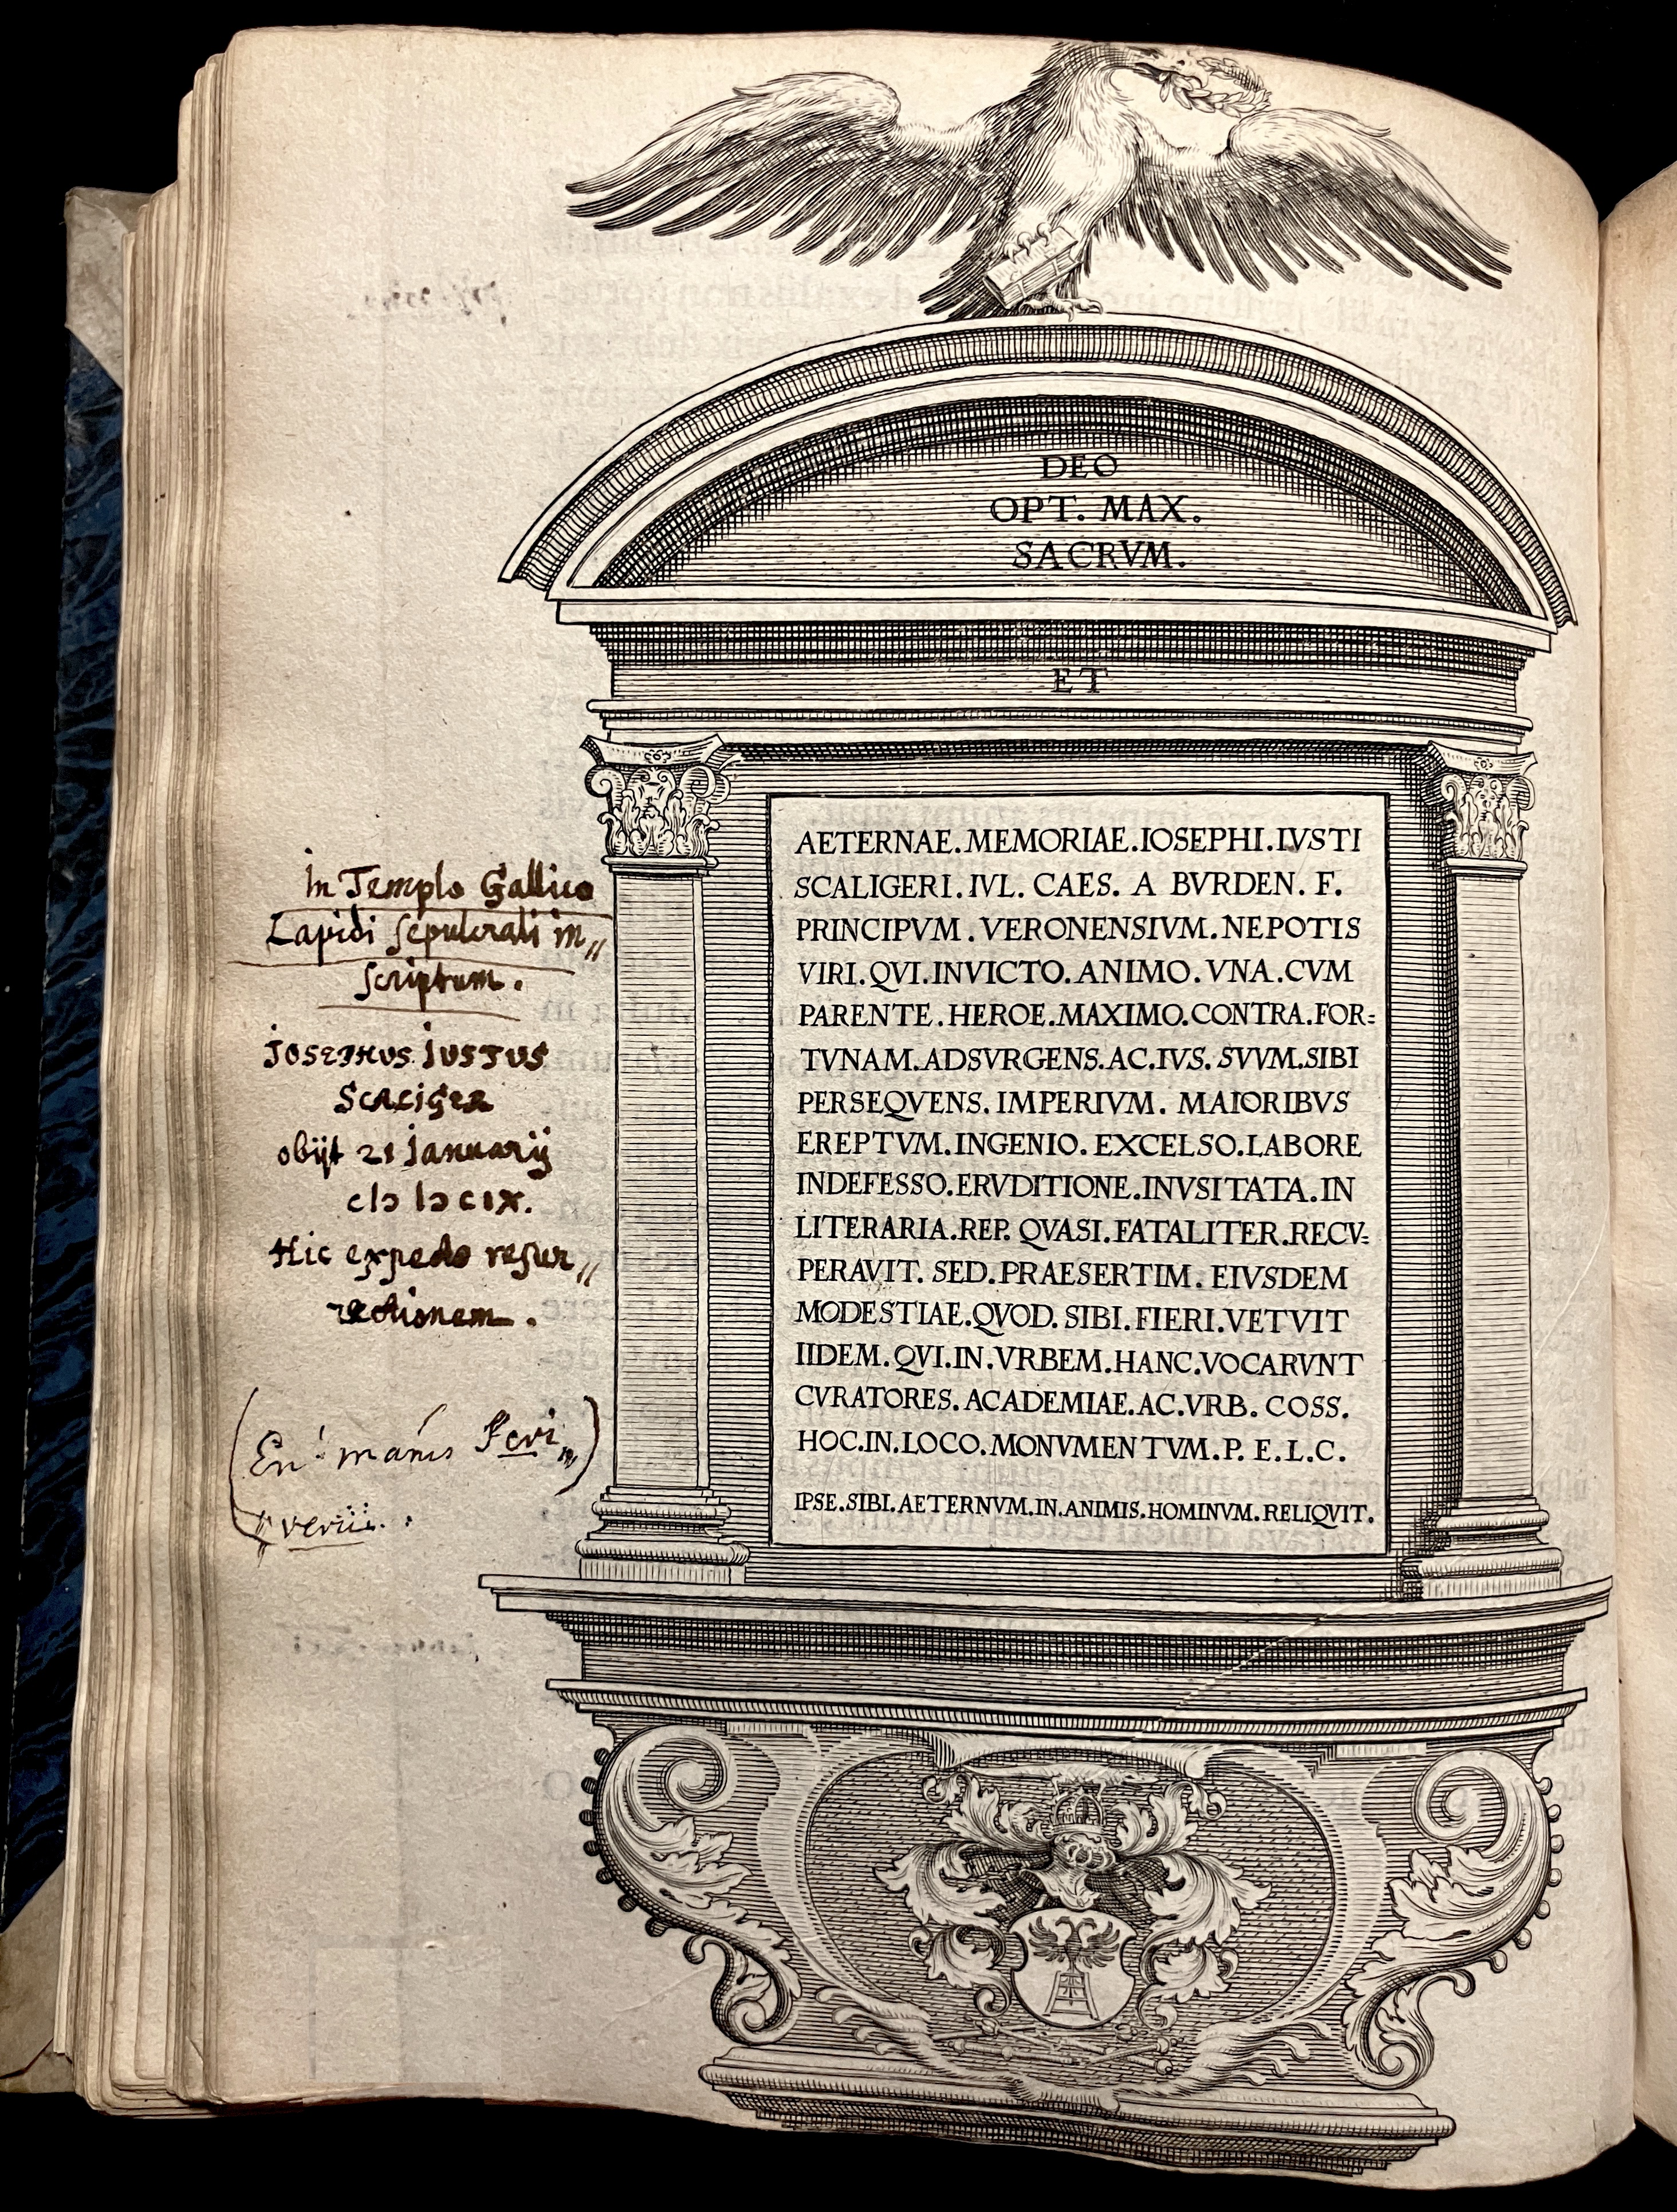 DEO
OPT. MAX.
SACRVM.
ET
AETERNAE.MEMORIAE.IOSEPHI.IVSTI
SCALIGERI.IVL. CAES. A BVRDEN. F.
PRINCIPVM.VERONENSIVM.NEPOTIS
VIRI.QVI.INVICTO.ANIMO.VNA.CVM
PARENTE.HEROE.MAXIMO.CONTRA.FOR=
TVNAM.ADSVRGENS.AC.IVS.SVVM.SIBI
PERSEQVENS.IMPERIVM. MAIORIBVS
EREPTVM.INGENIO.EXCELSO.LABORE
INDEFESSO.ERVDITIONE.INVSITATA.IN
LITERARIA.REP. QVASI.FATALITER.RECV=
PERAVIT. SED.PRAESERTIM. EIVSDEM
MODESTIAE.QVOD. SIBI.FIERI.VETVIT
IIDEM.QVI.IN.VRBEM.HANC.VOCARVNT
CVRATORES.ACADEMIAE.AC.VRB. COSS.
HOC.IN.LOCO.MONVMENTVM.P. E.L.C.
IPSE.SIBI.AETERNVM.IN.ANIMIS.HOMINVM.RELIQVIT.
In Templo Gallico
Lapidi sepulcrali in„
scriptum.
Josephus Justus
Scaliger
obijt 21 januarij
cIɔ Iɔ cIX.
Hic expecto resur„
rectionem.
manus